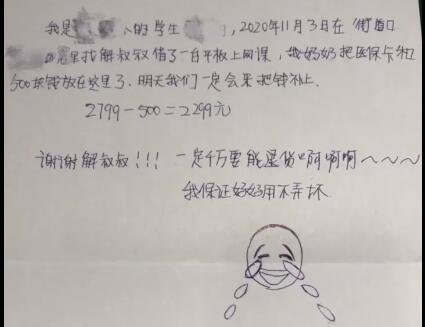 我是 的学生 , 2020年11月3日在 街道口
里找解叔叔借了一台平板上网课, 我妈妈把医保卡和
500块钱放在这里了. 明天我们一定会来把钱补上.
2799-500=2299元
谢谢解叔叔!!! 一定千万要能退货啊啊啊~~~
我保证好好用不弄坏